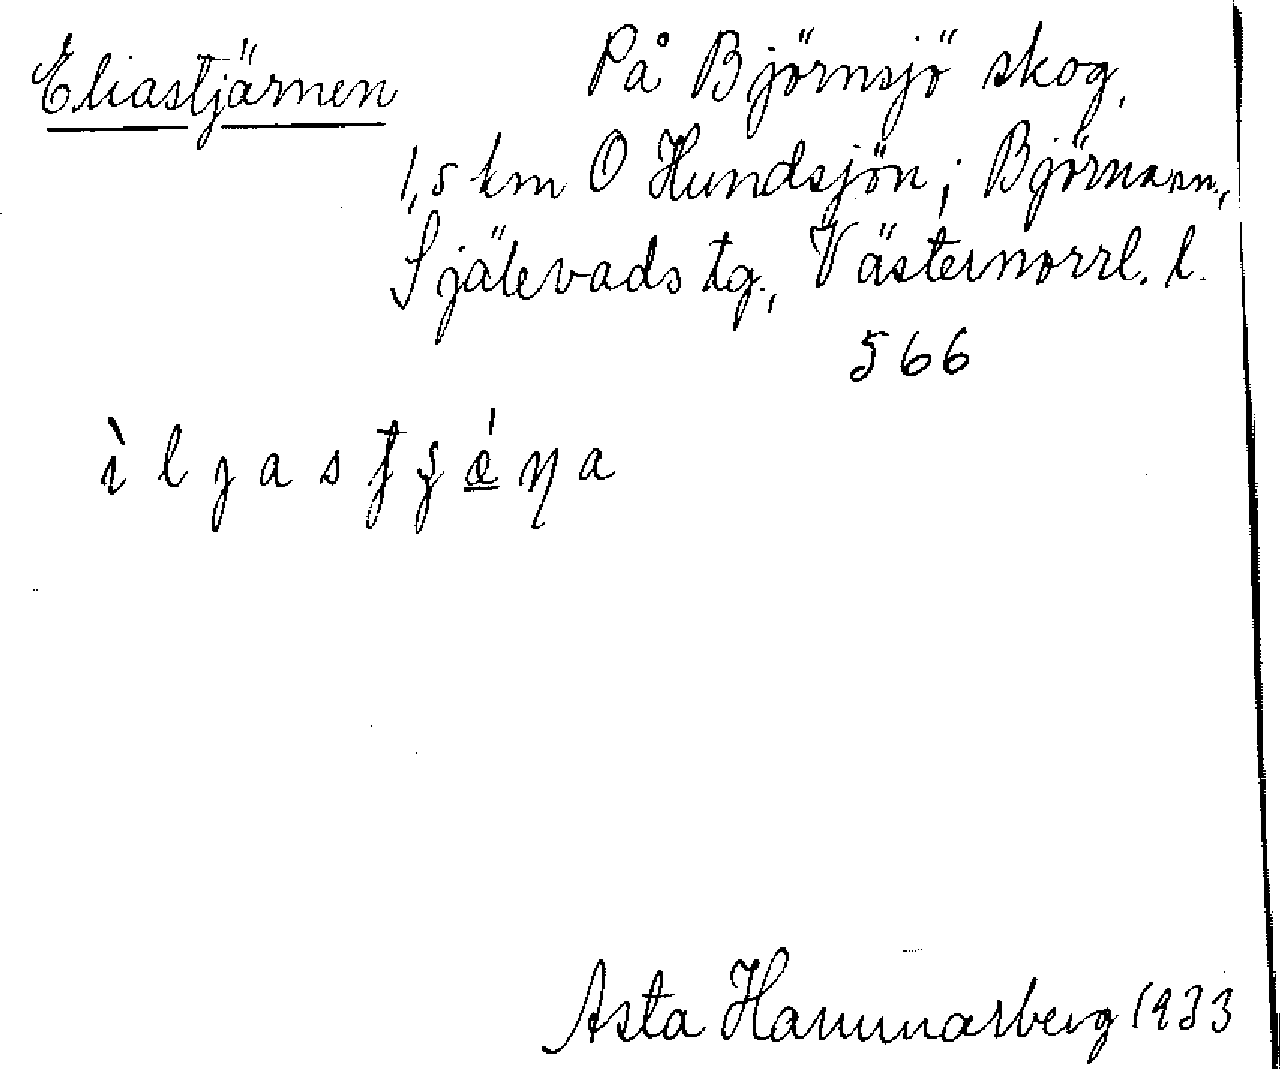 Eliastjärnen På Björnsjö skog,
1,5 km O Hundsjön; Björna sn,
Själevads tg., Västernorrl. l.
566
Asta Hammarberg 1933